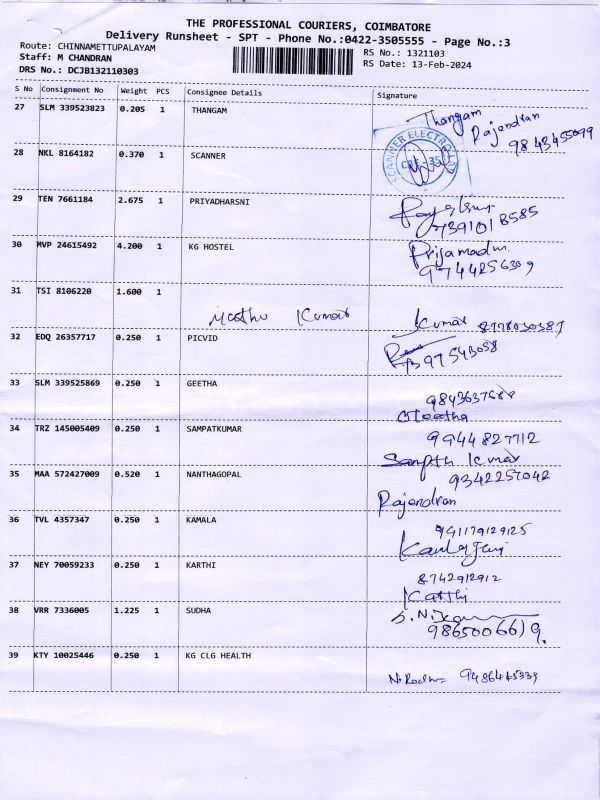 THE PROFESSIONAL COURIERS, COIMBATORE
Delivery Runsheet - SPT - Phone No.:0422-3505555 - Page No.:3
Route: CHINNAMETTUPALAYAM
Staff: M CHANDRAN
DRS No.: DCJB132110303
RS No.: 1321103
RS Date: 13-Feb-2024
S No Consignment No Weight PCS Consignee Details Signature
27 SLM 339523823 0.205 1 THANGAM Thangam
Rajendran
9843455099
28 NKL 8164182 0.370 1 SCANNER SCANNER ELECTRO
CBE - 35
29 TEN 7661184 2.675 1 PRIYADHARSNI
7391018585
30 MVP 24615492 4.200 1 KG HOSTEL Prijamadm
9744256309
31 TSI 8106220 1.600 1
Muthu Kumar Kumar
32 EDQ 26357717 0.250 1 PICVID
33 SLM 339525869 0.250 1 GEETHA
Geetha
34 TRZ 145005409 0.250 1 SAMPATKUMAR 9944827712
Sampth Kumar
35 MAA 572427009 0.520 1 NANTHAGOPAL 9342257042
Rajendran
36 TVL 4357347 0.250 1 KAMALA
37 NEY 70059233 0.250 1 KARTHI 8742912912
Karthi
38 VRR 7336005 1.225 1 SUDHA
9865006619
39 KTY 10025446 0.250 1 KG CLG HEALTH